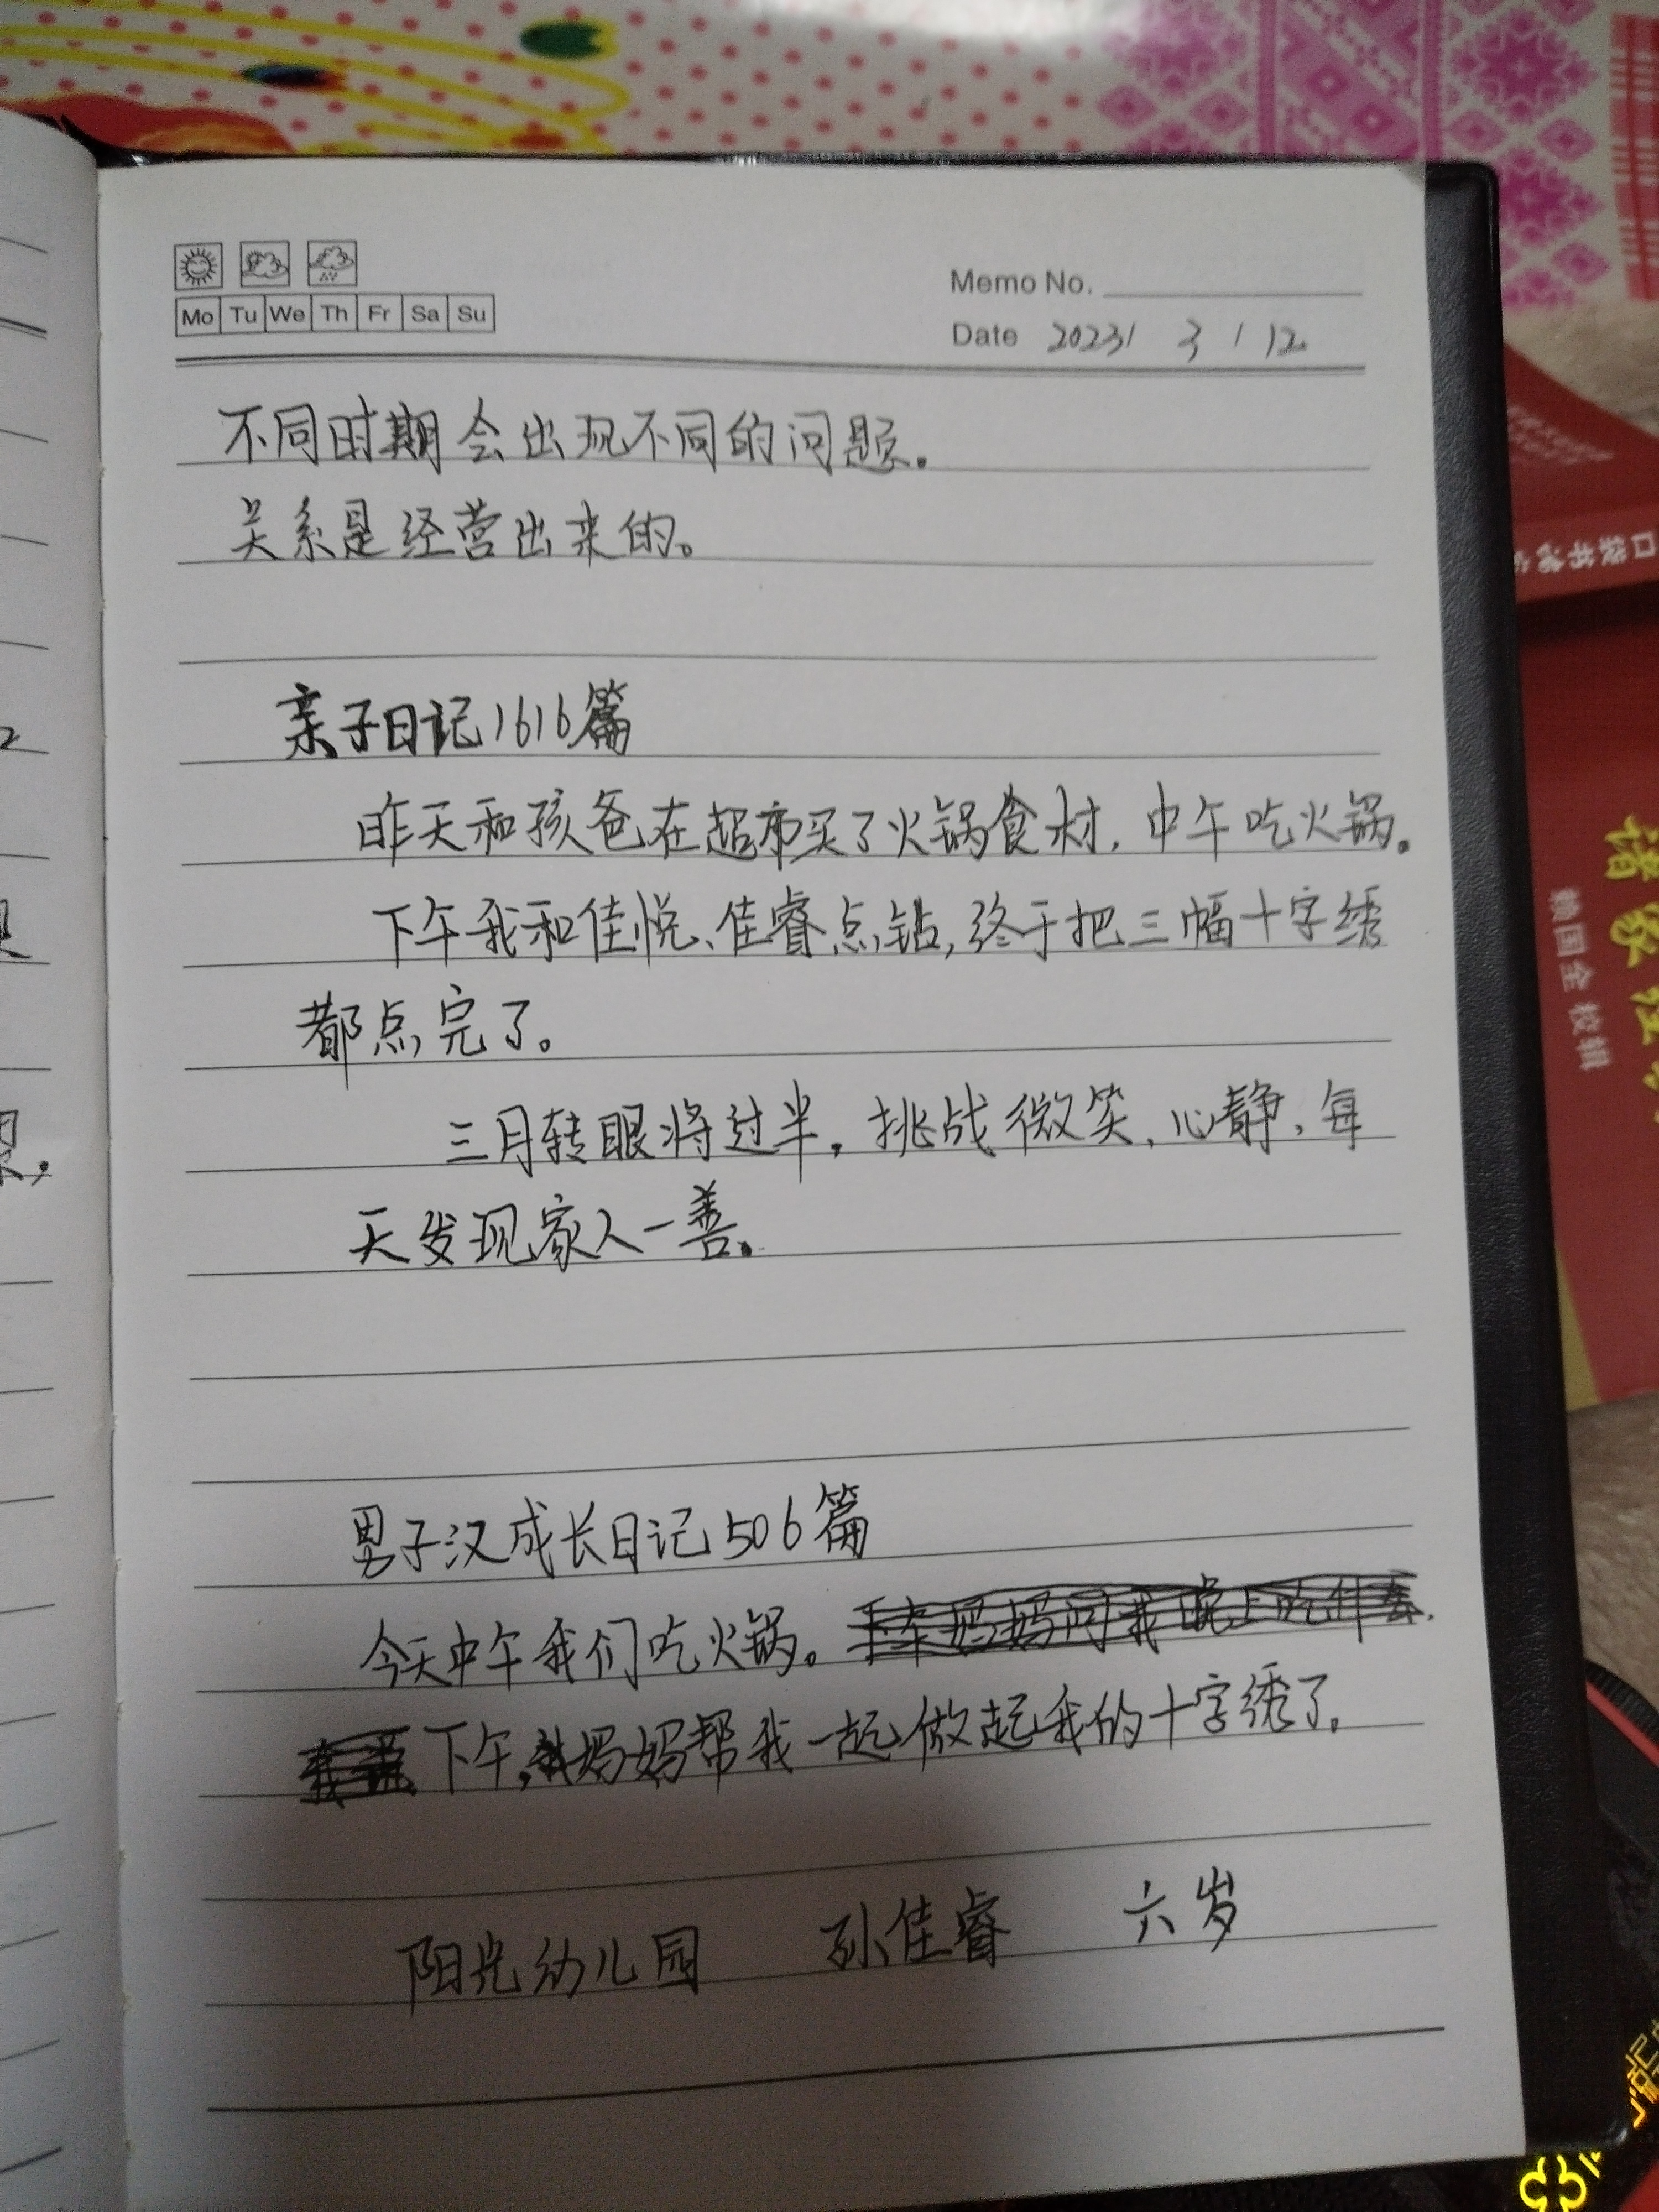 Mo Tu We Th Fr Sa Su
Memo No.
Date 2023/ 3 / 12
不同时期会出现不同的问题。
关系是经营出来的。
亲子日记1616篇
昨天和孩爸在超市买了火锅食材,中午吃火锅。
下午我和佳悦、佳睿点钻,终于把三幅十字绣
都点完了。
三月转眼将过半。挑战微笑、心静、每
天发现家人一善。
男子汉成长日记506篇
今天中午我们吃火锅。
下午,妈妈帮我一起做起我的十字绣了。
阳光幼儿园 孙佳睿 六岁
赖国全 校辑
口袋书
诸